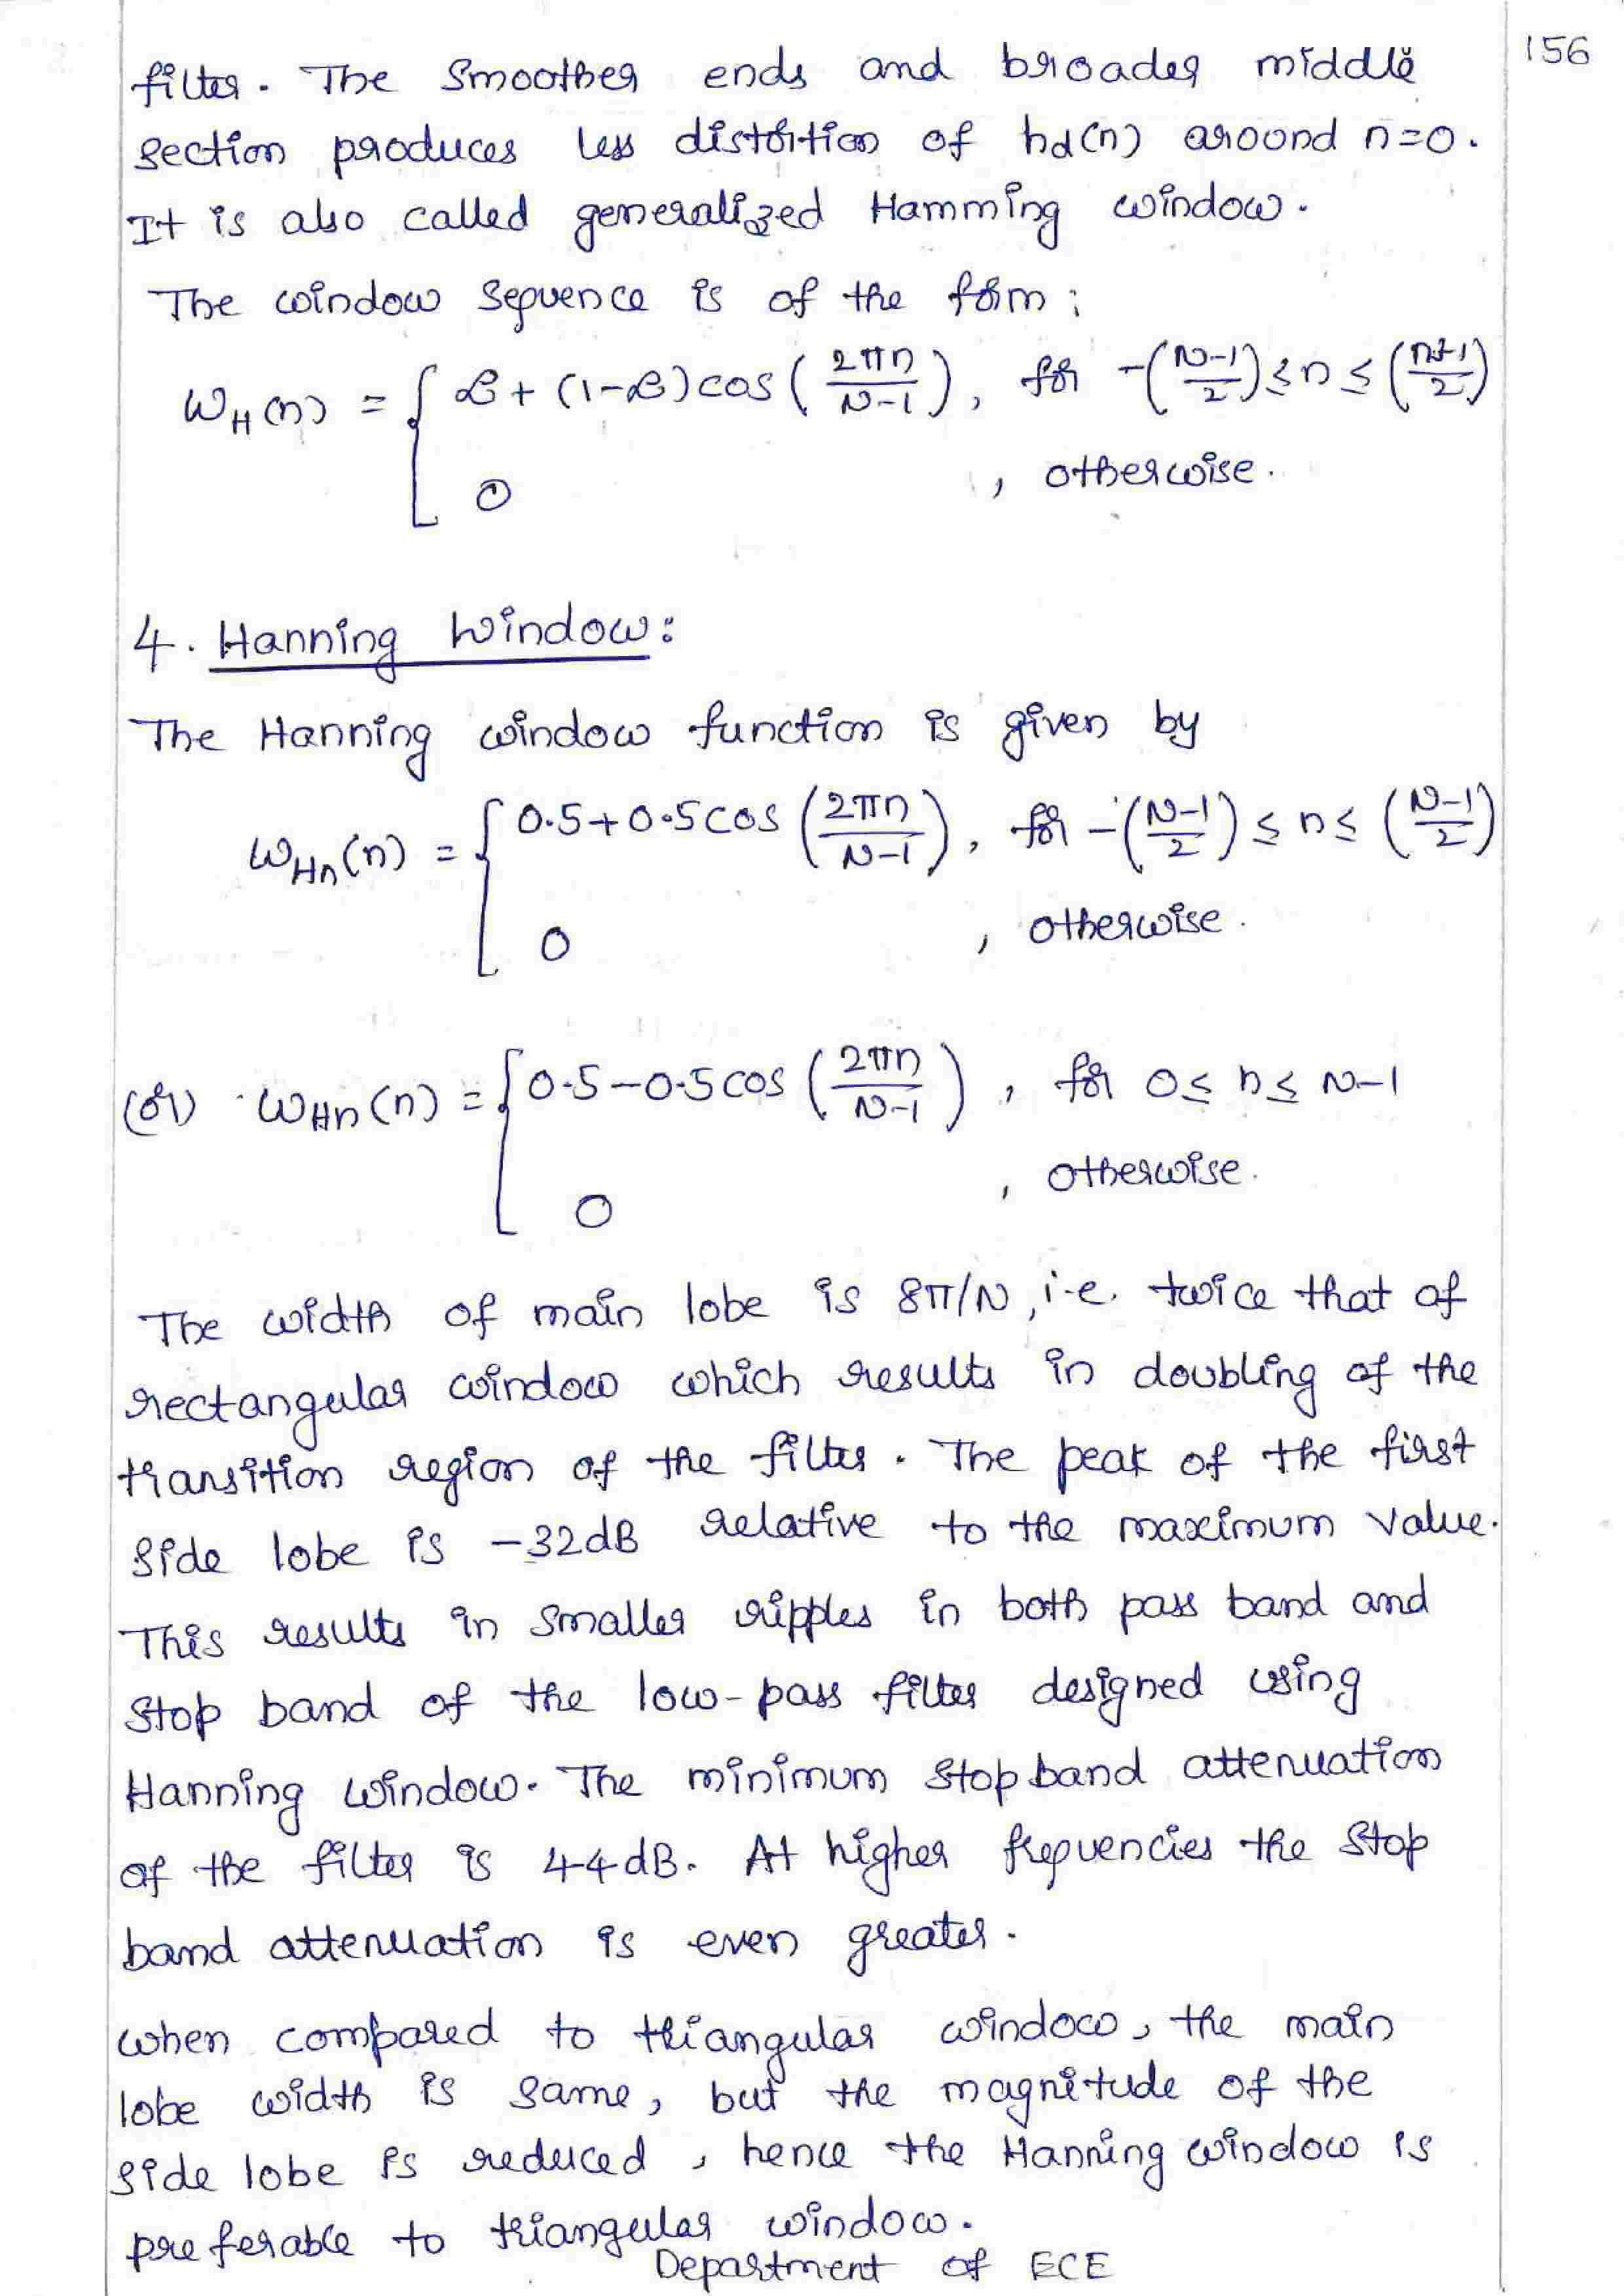 156
filter. The Smoother ends and broader middle
section produces less distortion of hd(n) around n=0.
It is also called generalized Hamming window.
The window sequence is of the form;
ω_H(n) = { α + (1-α)cos(2πn/N-1), for -(N-1/2) ≤ n ≤ (n+1/2)
0 , otherwise.
4. Hanning Window:
The Hanning window function is given by
ω_Hn(n) = { 0.5+0.5cos(2πn/N-1), for -(N-1/2) ≤ n ≤ (N-1/2)
0 , otherwise.
(or) ω_Hn(n) = { 0.5-0.5cos(2πn/N-1), for 0 ≤ n ≤ N-1
0 , otherwise.
The width of main lobe is 8π/N, i.e. twice that of
rectangular window which results in doubling of the
transition region of the filter. The peak of the first
side lobe is -32dB relative to the maximum value.
This results in smaller ripples in both pass band and
Stop band of the low-pass filter designed using
Hanning window. The minimum stop band attenuation
of the filter is 44dB. At higher frequencies the stop
band attenuation is even greater.
when compared to triangular window, the main
lobe width is same, but the magnitude of the
side lobe is reduced, hence the Hanning window is
preferable to triangular window.
Department of ECE